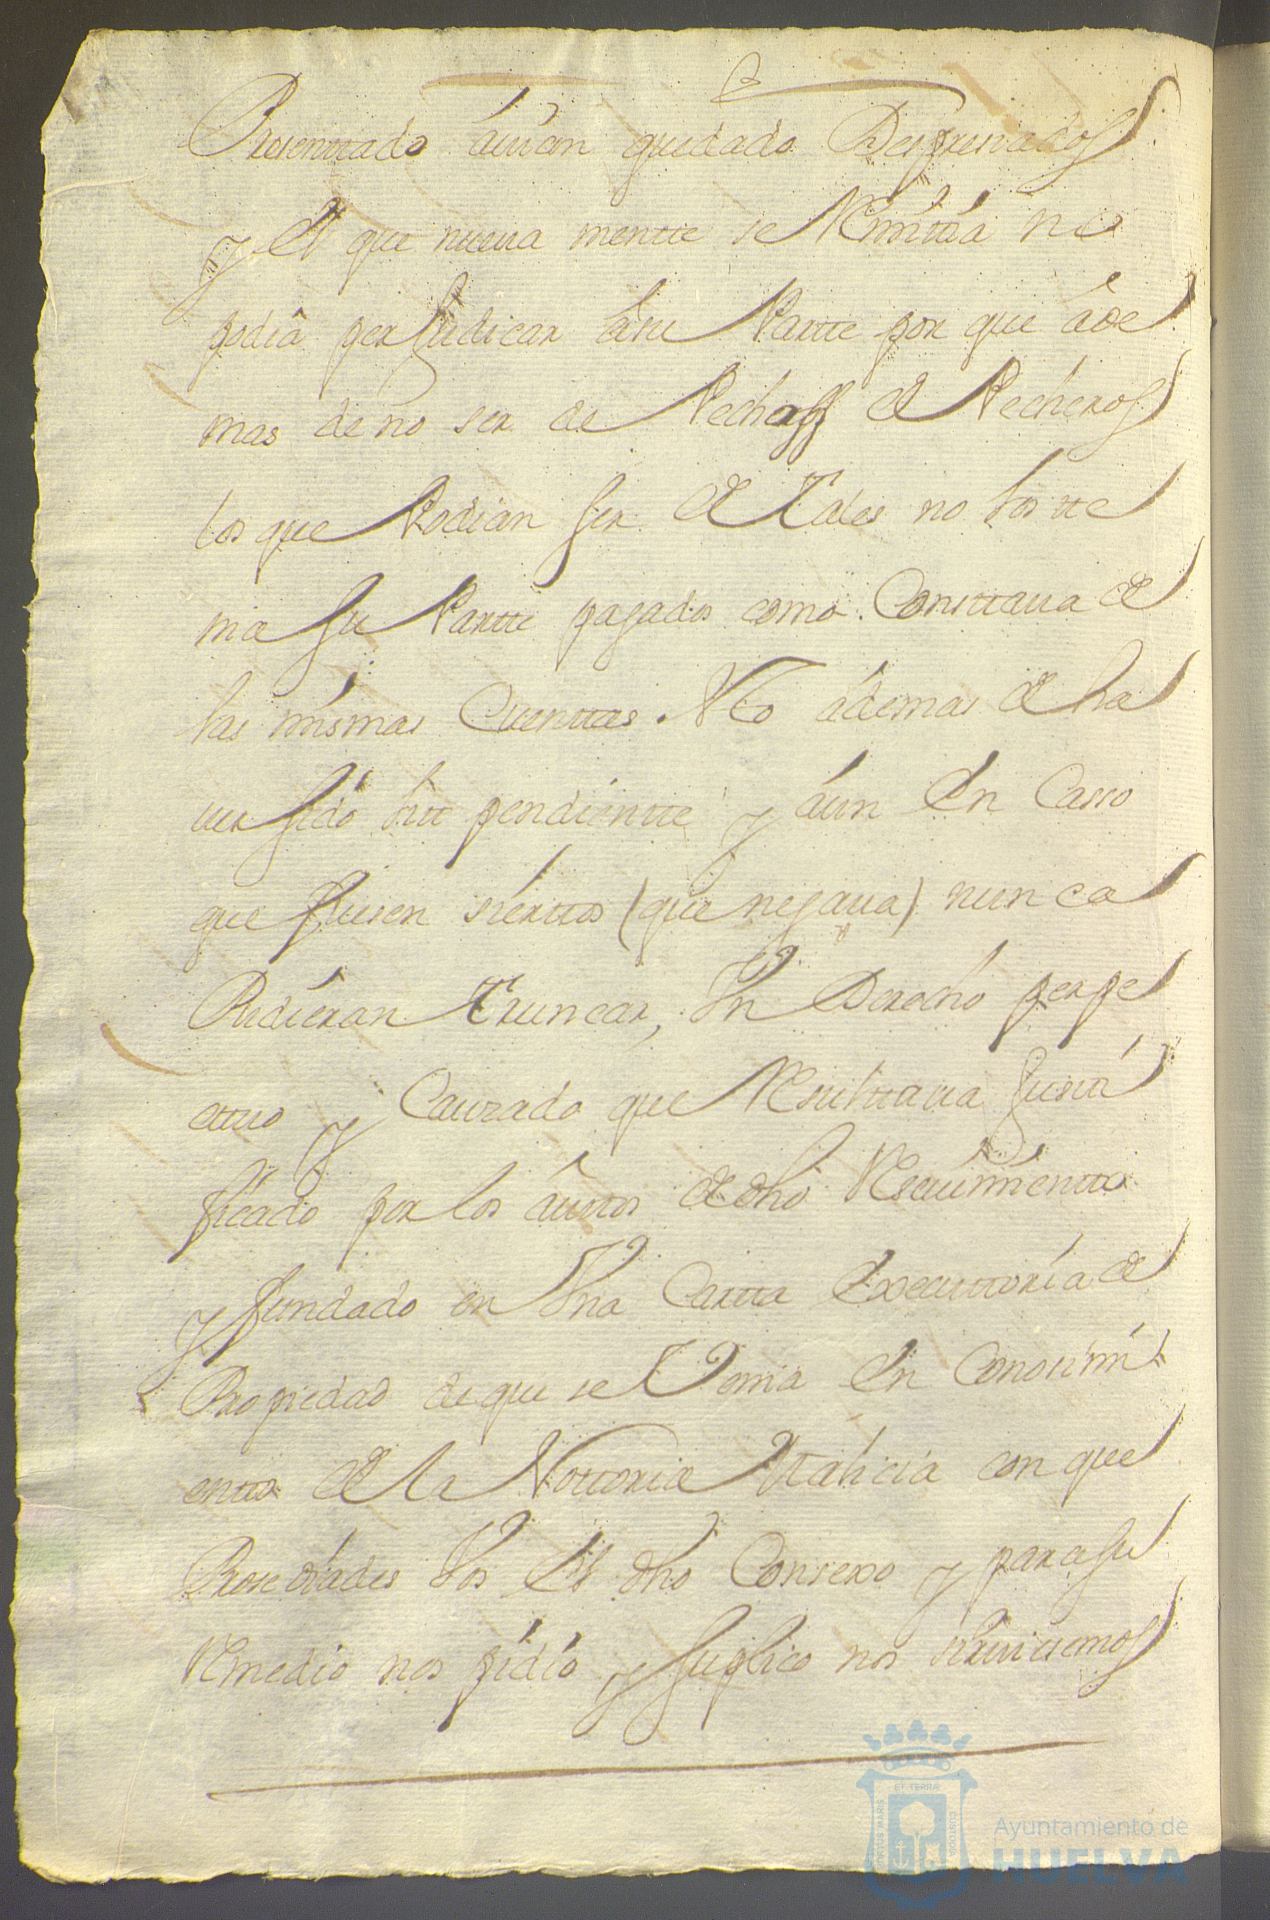 Presenttado auian quedado Despreciados
y el que nueua mentte se Remitia no
podia perJudicar âsu Partte por que ade
mas de no ser de Pechos de Pecheros
los que Podian ser de Tales no los tte
nia su Partte pagados como Consttaua de
las mismas Cuenttas. Y lo ádemas de ha
uer sido litt pendientte y aun En Casso
que fuesen sierttos (que negaua) nunca
Pudieran Truncar, Vn Derecho perpe
ttuo y Causado que Resulttaua Justi
ficado por los auttos de dho Reseuimientto
y fundado en Vna Cartta Executtoria de
Propiedad de que se Venia En Conosimi
entto de la Nottoria Malicia con que
Prosedia des dos El dho Consexo y para su
Remedio nos pidio, y suplico nos siruiesemos
Ayuntamiento de
HUELVA